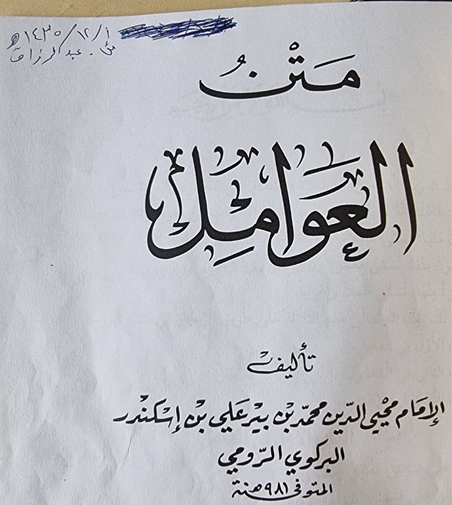 ١/١٢/١٤٣٥هـ
عبد الرزاق
مَتْنُ
العَوَامِل
تأليف
الإمام محيي الدين محمد بن بير علي بن إسكندر
البركوي الرومي
المتوفى ٩٨١ هـنة